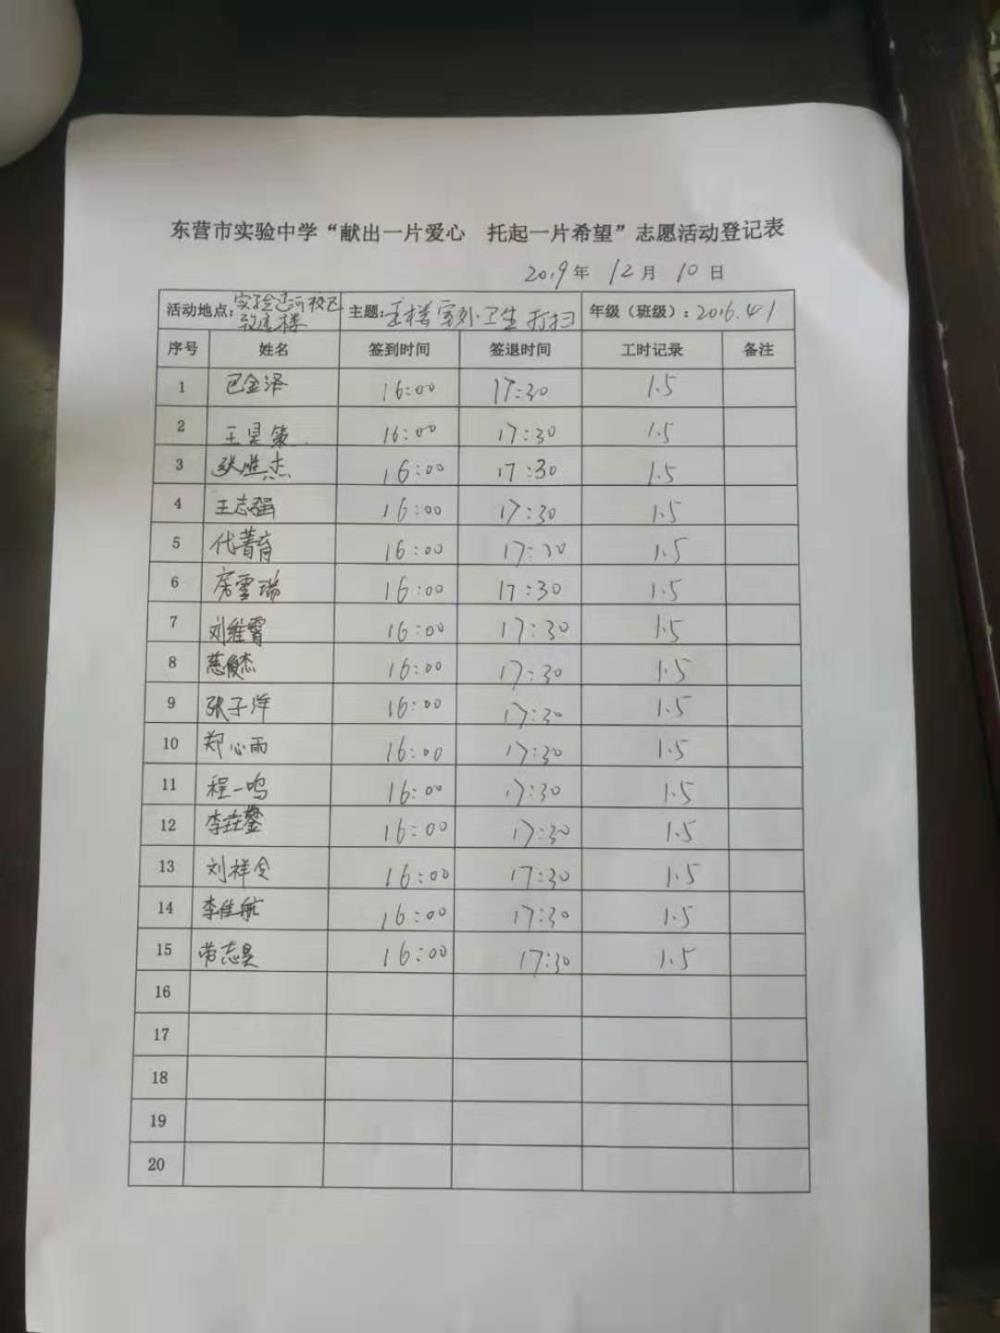 东营市实验中学“献出一片爱心 托起一片希望”志愿活动登记表
2019年 12月 10日
活动地点：实验过河校区 主题：主楼室外卫生打扫 年级（班级）：2016.41
致远楼
序号 姓名 签到时间 签退时间 工时记录 备注
1 巴金泽 16:00 17:30 1.5
2 王昊策 16:00 17:30 1.5
3 张洪杰 16:00 17:30 1.5
4 王志强 16:00 17:30 1.5
5 代菁育 16:00 17:30 1.5
6 席雪瑞 16:00 17:30 1.5
7 刘维霄 16:00 17:30 1.5
8 慈俊杰 16:00 17:30 1.5
9 张子洋 16:00 17:30 1.5
10 郑心雨 16:00 17:30 1.5
11 程一鸣 16:00 17:30 1.5
12 李 16:00 17:30 1.5
13 刘祥 16:00 17:30 1.5
14 李佳航 16:00 17:30 1.5
15 志昊 16:00 17:30 1.5
16
17
18
19
20